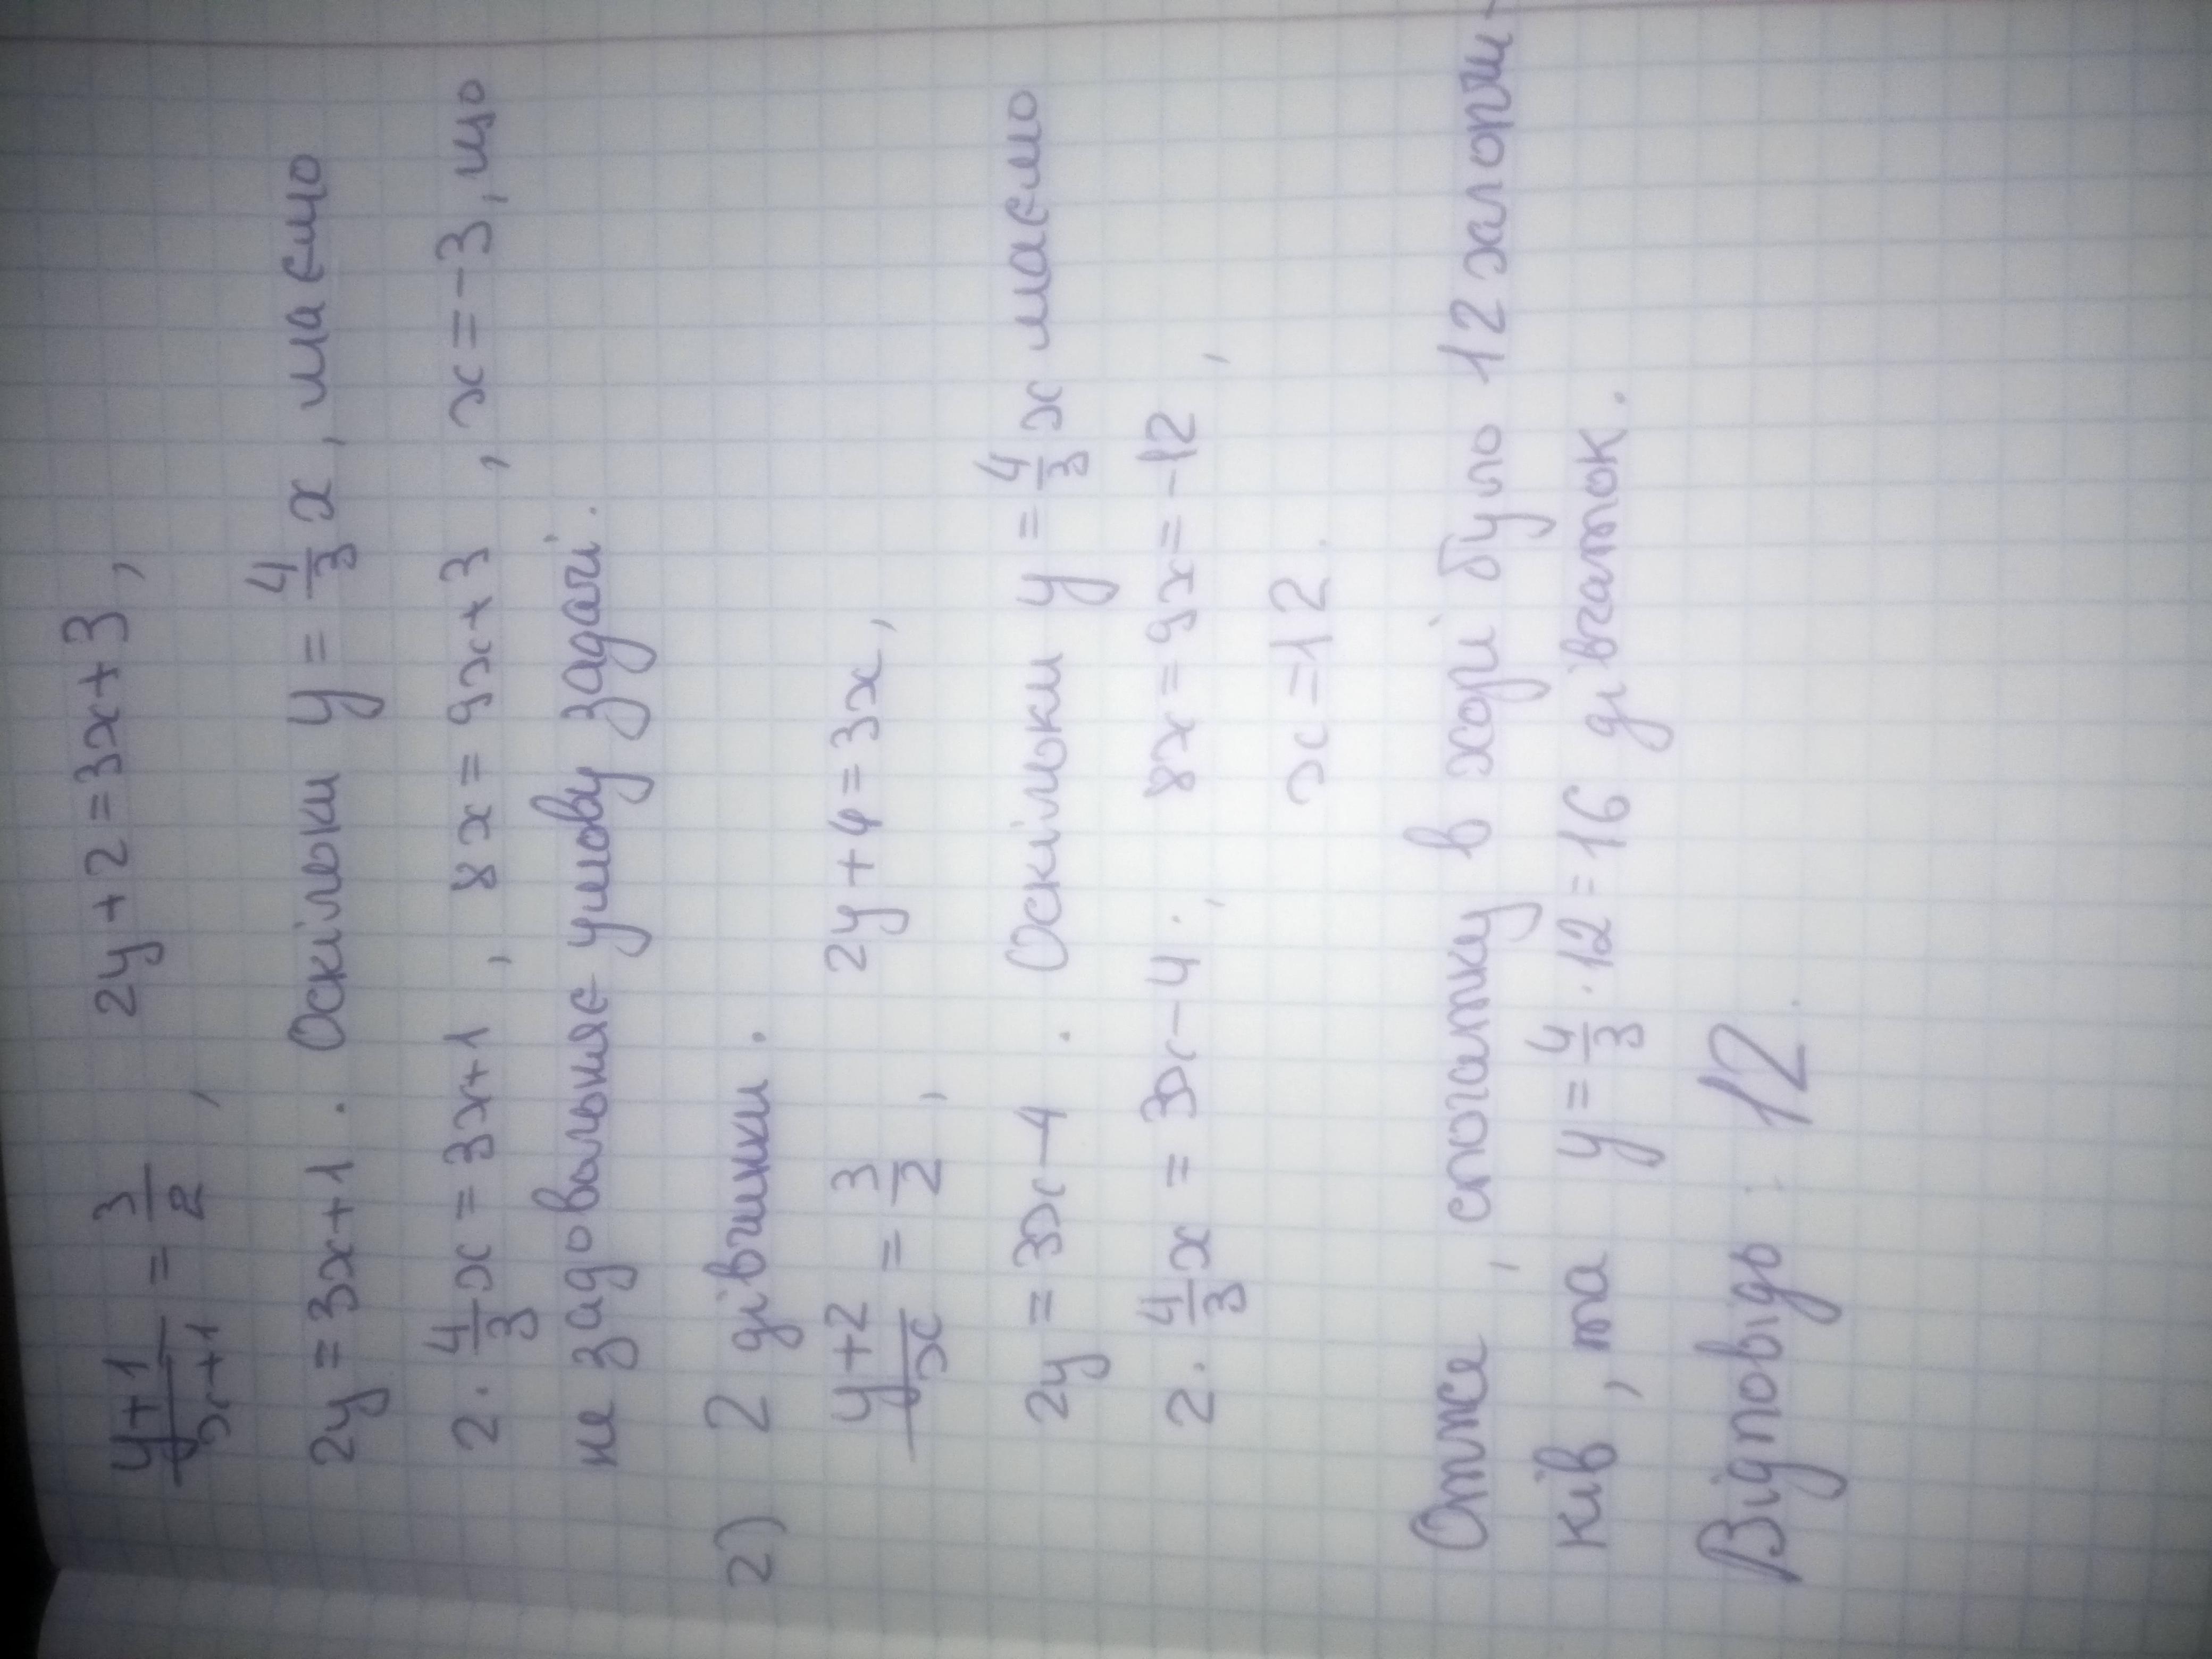 y+1/x+1 = 3/2, 2y+2=3x+3,
2y=3x+1. Оскільки y = 4/3 x, маємо
2·4/3 x = 3x+1, 8x = 9x+3, x=-3, що
не задовольняє умову задачі.
2) 2 дівчинки.
y+2/x = 3/2, 2y+4=3x,
2y = 3x-4. Оскільки y = 4/3 x маємо
2·4/3 x = 3x-4; 8x=9x=-12,
x=12.
Отже, спочатку в хорі було 12 хлопчи-
ків, та y = 4/3 · 12 = 16 дівчаток.
Відповідь: 12.